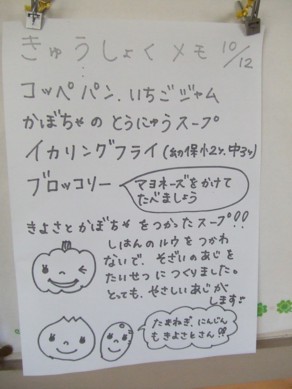 きゅうしょくメモ 10/12
コッペパン、いちごジャム
かぼちゃの とうにゅうスープ
イカリングフライ(幼保小2ヶ.中3ヶ)
ブロッコリー
マヨネーズをかけて
たべましょう
きよさとかぼちゃをつかったスープ!!
しはんのルウをつかわ
ないで、そざいのあじを
たいせつにつくりました。
とっても、やさしいあじが
します♪
たまねぎ、にんじん
もきよさとさん!!